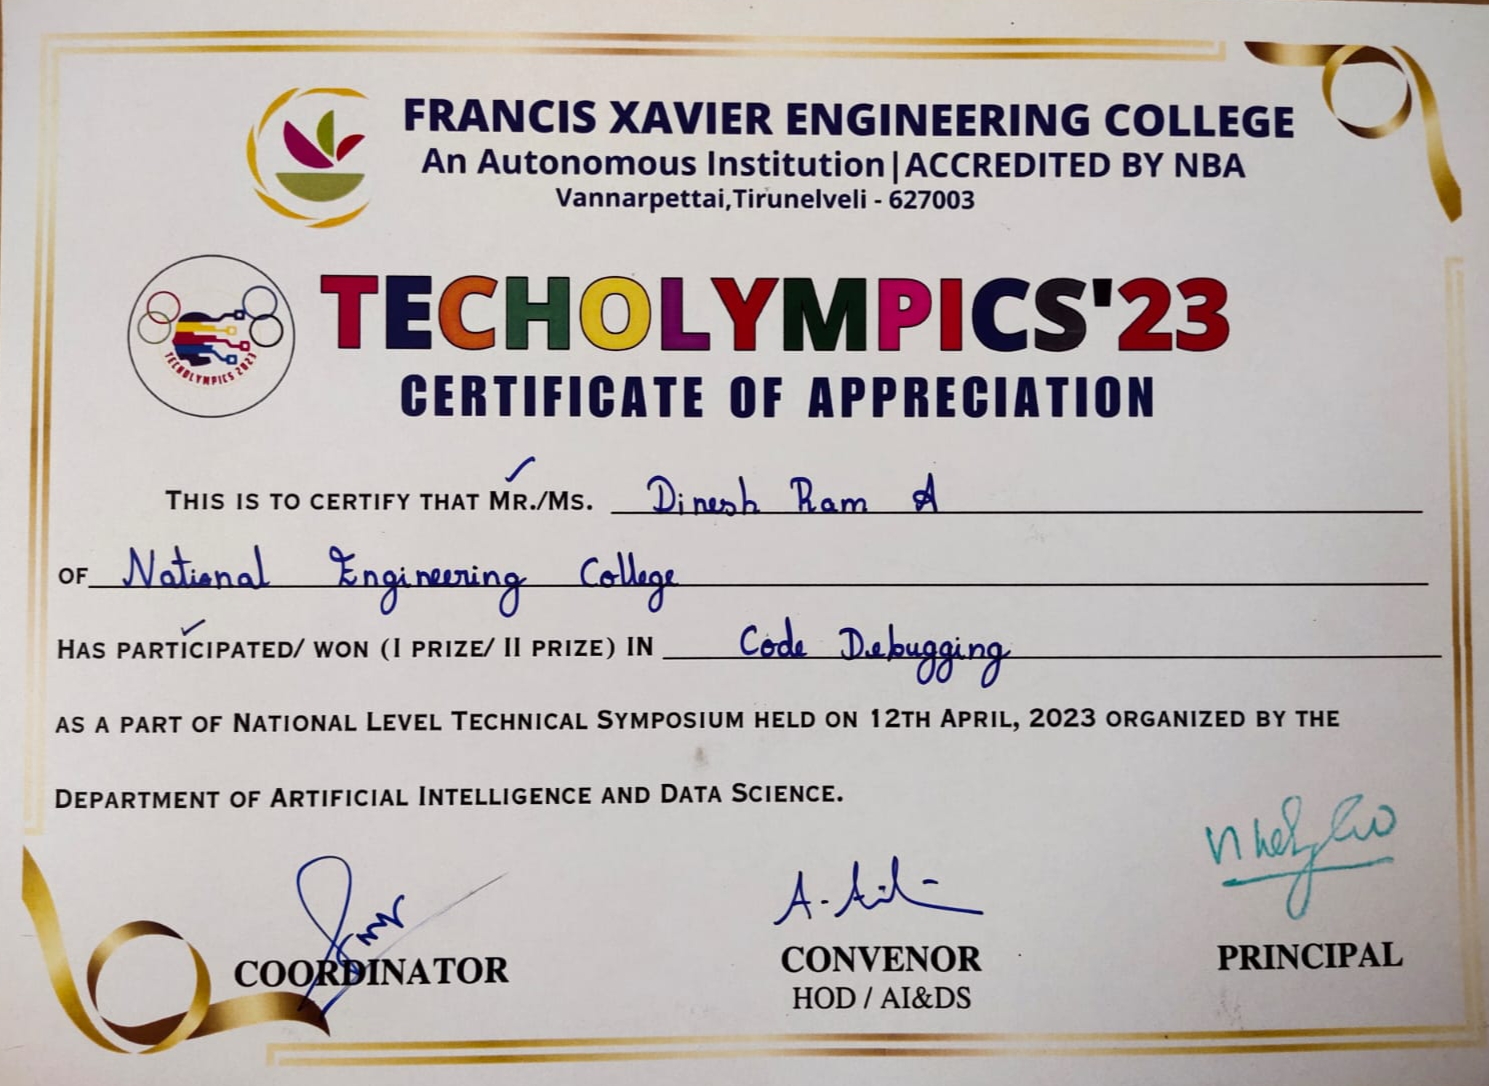 FRANCIS XAVIER ENGINEERING COLLEGE
An Autonomous Institution|ACCREDITED BY NBA
Vannarpettai,Tirunelveli - 627003
TECHOLYMPICS 2023
TECHOLYMPICS'23
CERTIFICATE OF APPRECIATION
THIS IS TO CERTIFY THAT MR./MS. Dinesh Ram A
OF National Engineering College
HAS PARTICIPATED/ WON (I PRIZE/ II PRIZE) IN Code Debugging
AS A PART OF NATIONAL LEVEL TECHNICAL SYMPOSIUM HELD ON 12TH APRIL, 2023 ORGANIZED BY THE
DEPARTMENT OF ARTIFICIAL INTELLIGENCE AND DATA SCIENCE.
COORDINATOR
CONVENOR
HOD / AI&DS
PRINCIPAL